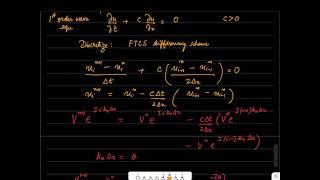 1st order wave ∂u/∂t + c ∂u/∂x = 0 c>0
eqn
Discretize: FTCS differencing scheme
(u_i^{n+1} - u_i^n)/Δt + c ( (u_{i+1}^n - u_{i-1}^n)/2Δx ) = 0
u_i^{n+1} = u_i^n - cΔt/2Δx ( u_{i+1}^n - u_{i-1}^n )
V^{n+1} e^{I i k_x Δx} = V^n e^{I i k_x Δx} - cΔt/2Δx ( V^n e^{I(i+1) k_x Δx}
- V^n e^{I(i-1) k_x Δx} )
k_x Δx = θ